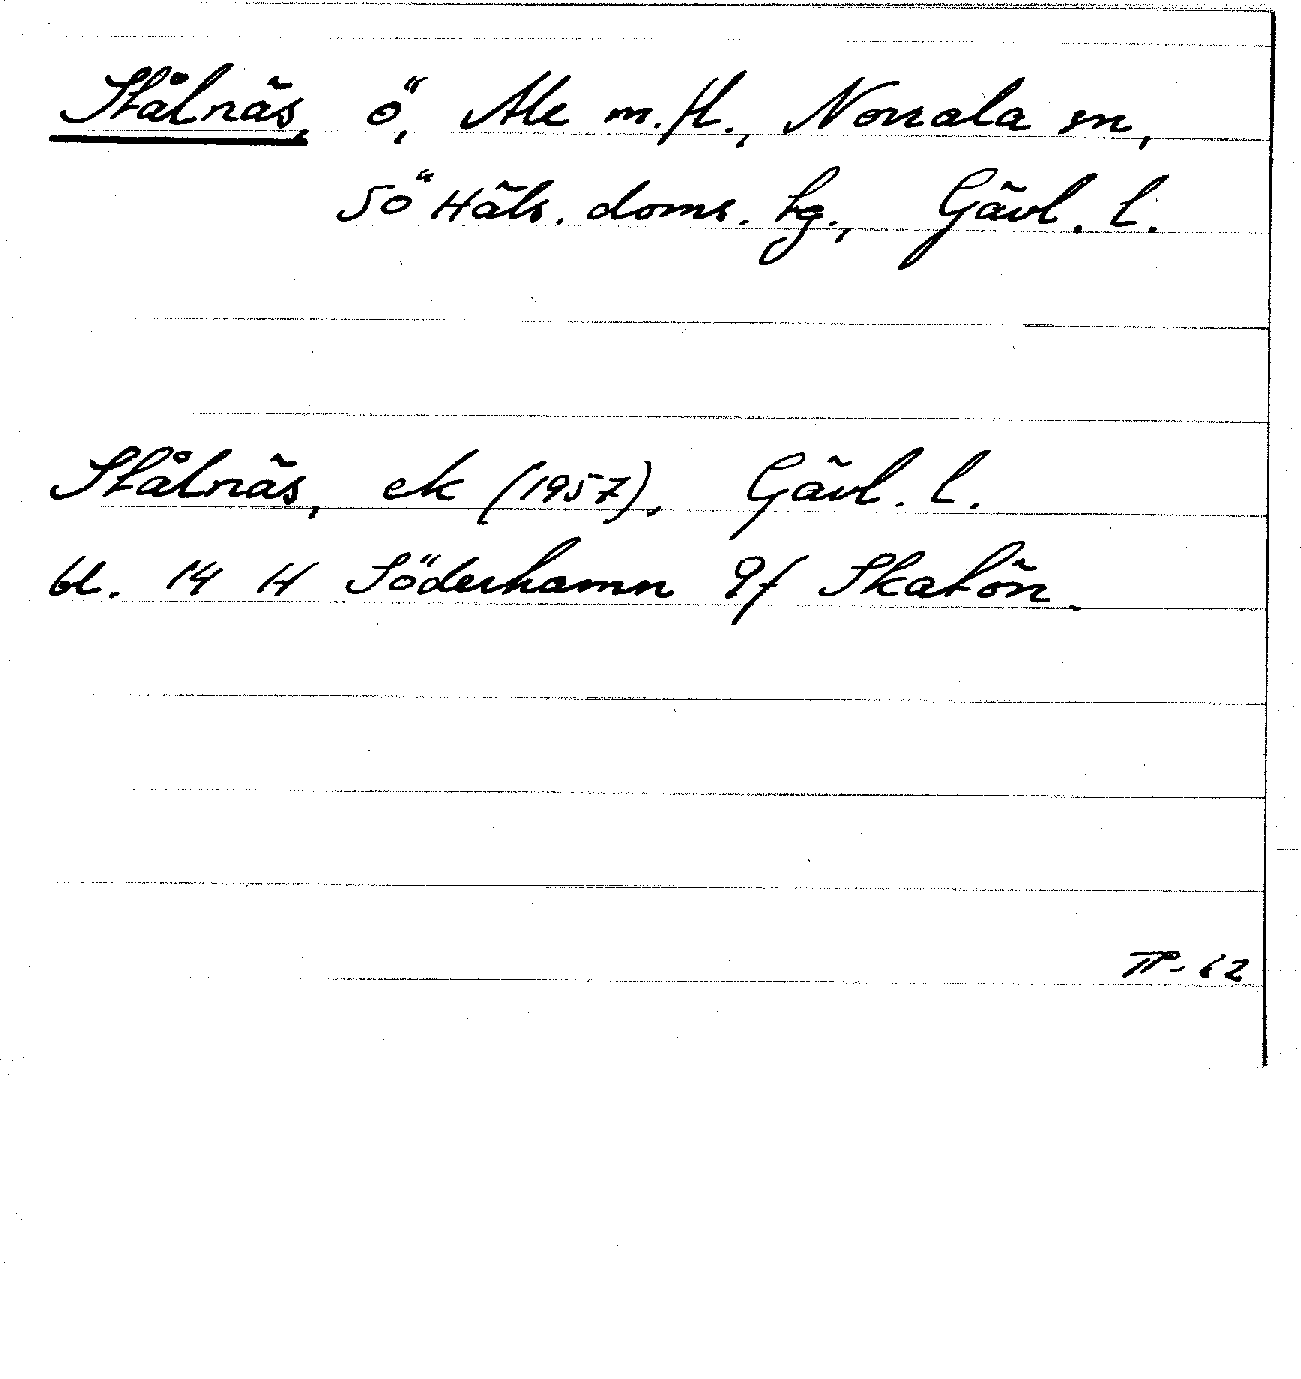 Stålnäs, ö, Ale m.fl., Norrala sn,
Sö Häls. doms. tg., Gävl. l.
Stålnäs, ek (1957), Gävl. l.
bl. 14 H Söderhamn 9f Skatön.
TP-62